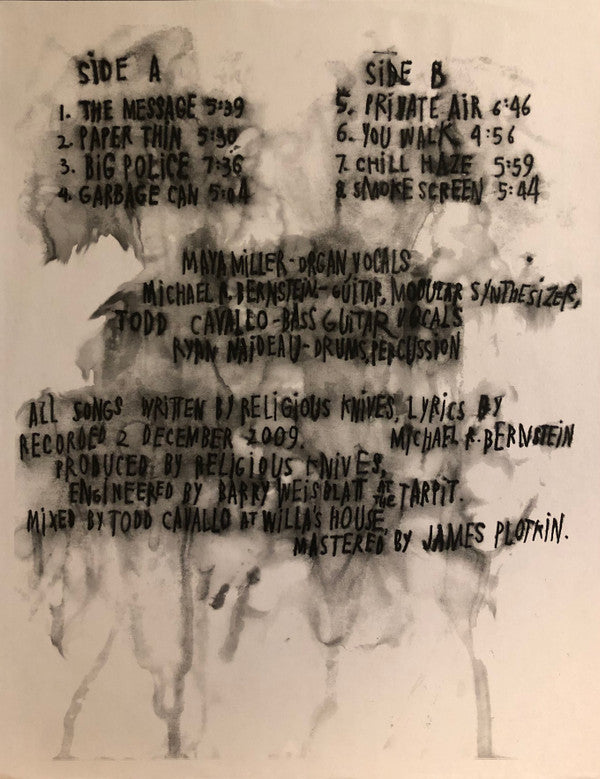 SIDE A
1. THE MESSAGE 5:39
2. PAPER THIN 5:30
3. BIG POLICE 7:36
4. GARBAGE CAN 5:04
SIDE B
5. PRIVATE AIR 6:46
6. YOU WALK 4:56
7. CHILL HAZE 5:59
8. SMOKE SCREEN 5:44
MAYA MILLER - ORGAN, VOCALS
MICHAEL R. BERNSTEIN - GUITAR, MODULAR SYNTHESIZER,
TODD CAVALLO - BASS GUITAR VOCALS
RYAN NAIDEAU - DRUMS, PERCUSSION
ALL SONGS WRITTEN BY RELIGIOUS KNIVES. LYRICS BY
MICHAEL R. BERNSTEIN
RECORDED 2 DECEMBER 2009.
PRODUCED BY RELIGIOUS KNIVES,
ENGINEERED BY BARRY WEISBLATT AT THE TARPIT.
MIXED BY TODD CAVALLO AT WILLA'S HOUSE,
MASTERED BY JAMES PLOTKIN.